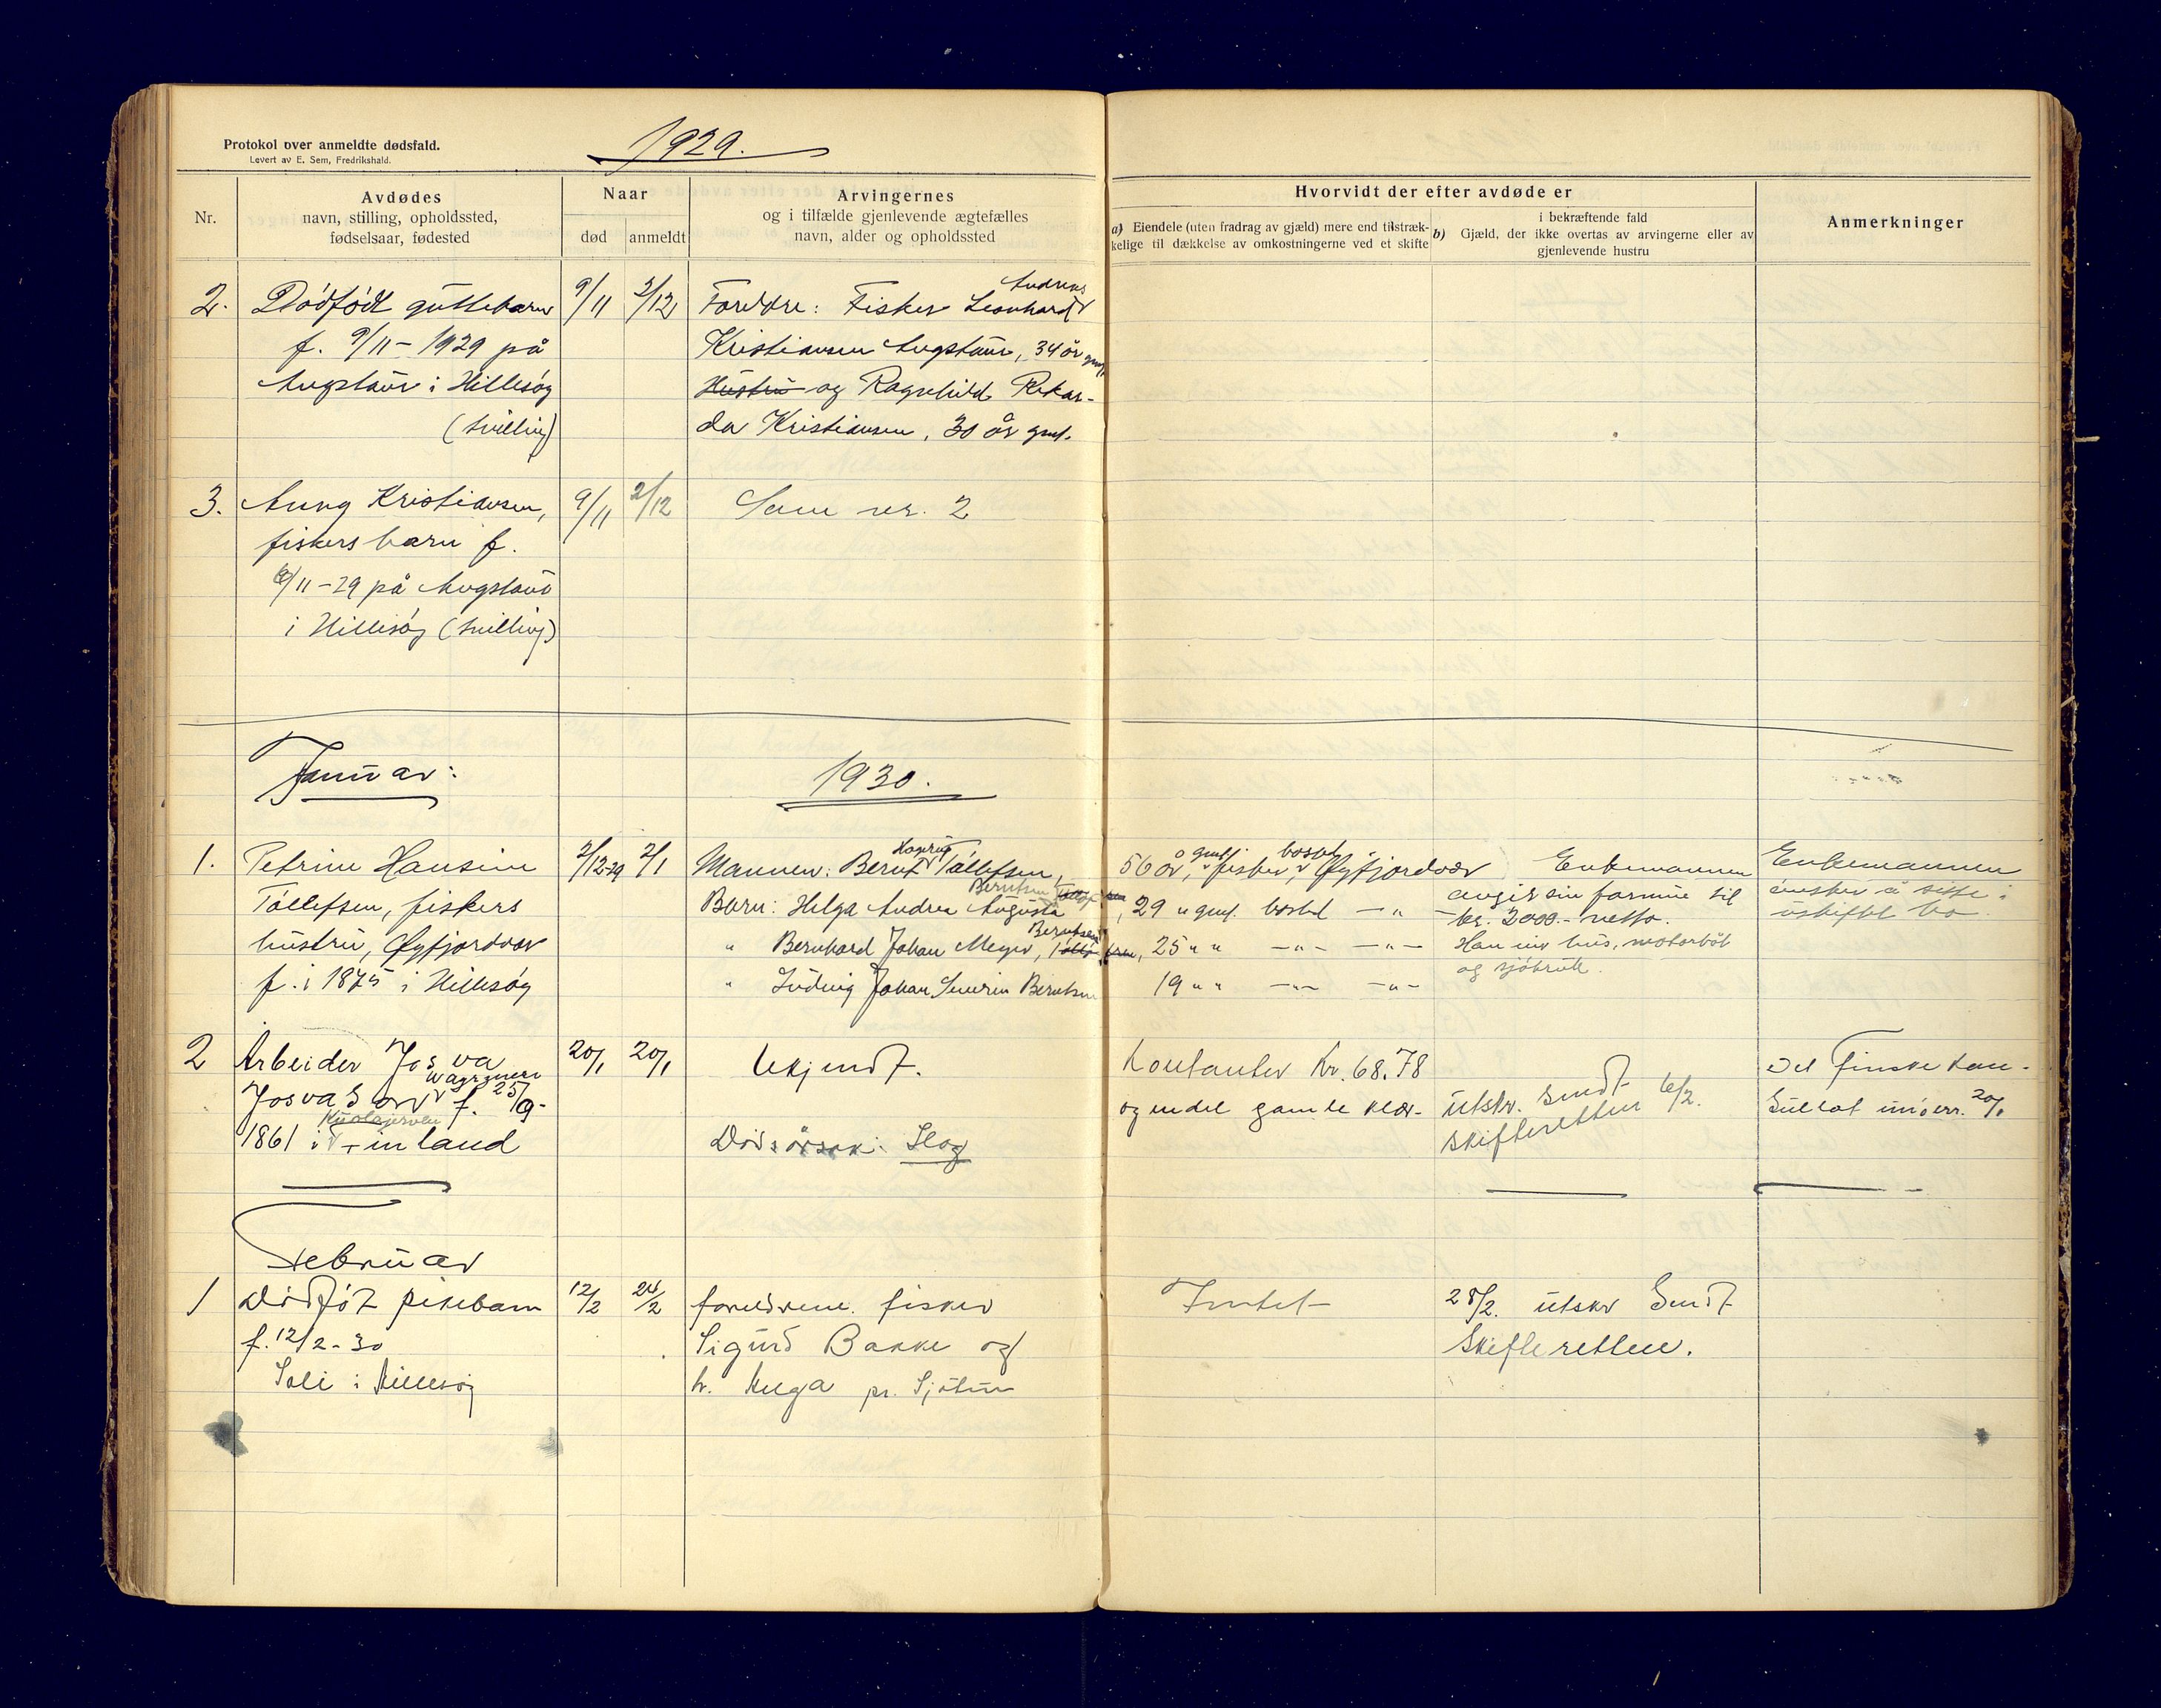 Protokol over anmeldte dødsfald.
Levert av E. Sem, Fredrikshald.
1929.
Nr.
Avdødes
navn, stilling, opholdssted,
fødselsaar, fødested
Naar
død
anmeldt
Arvingernes
og i tilfælde gjenlevende ægtefælles
navn, alder og opholdssted
Hvorvidt der efter avdøde er
a) Eiendele (uten fradrag av gjæld) mere end tilstræk-
kelige til dækkelse av omkostningerne ved et skifte
i bekræftende fald
b) Gjæld, der ikke overtas av arvingerne eller av
gjenlevende hustru
Anmerkninger
2. Dødfødt guttebarn 9/11 3/12 Foreldre: Fisker Leonhard Andreas
f. 9/11 - 1929 på Kristiansen Angstaur, 34 år gml.
Angstaur i Hillesøy Hustru og Ragnhild Rikar-
(tvilling) da Kristiansen, 30 år gml.
3. Aung Kristiansen, 9/11 2/12 Som nr. 2
fiskers barn f.
/11-29 på Angstaur
i Hillesøy (tvilling)
Januar:
1930.
1. Petrine Hansine 2/12-29 2/1 Mannen: Bernt Tollefsen, 56 år, gml, fisker, bosat Øyfjordvær Enkemannen Enkemannen
Tollefsen, fiskers Barn: Helga Andrea Augusta Berntsen, 29 " gml. bosat -"- avgir sin formue til ønsker å sitte i
kr. 2000.- netto. uskiftet bo
hustru, Øyfjordvær " Bernhard Johan Meyer, Berntsen, 25 " " -"- -"- Han eier hus, motorbåt
og sjøbruk.
f. i 1875 i Hillesøy " Ludvig Johan Severin Berntsen 19 " " -"- -"-
2 Arbeider Josva 20/1 20/1 Ukjendt. Kontanter Kr. 68.78 Det finske kon-
Josvason f. 25/9- og endel gamle klær utskr. sendt 6/2. sulat underr. 20/1
skifteretten
1861 i Finland Dødsårsak: Slag
Februar
1 Dødfødt pikebarn 12/2 24/2 foreldrene. fisker Intet 28/2. utskr sendt
f. 12/2-30 Sigurd Bakke og Skifteretten.
i Hillesøy h. Helga pr. Sjøtun